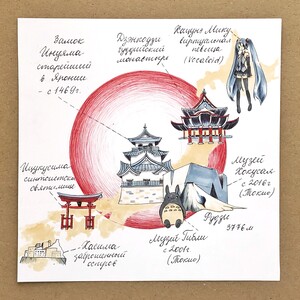 Замок
Инуяма
старейший
в Японии
с 1469г.
Дзюкодзи
буддийский
монастырь
Хацунэ Мику
виртуальная
певица
(Vocaloid)
Ицукусима
синтоистское
святилище
Музей
Хокусая
с 2016г.
(Токио)
Фудзи
3776 м
Музей Гибли
с 2001г.
(Токио)
Хасима
заброшенный
остров